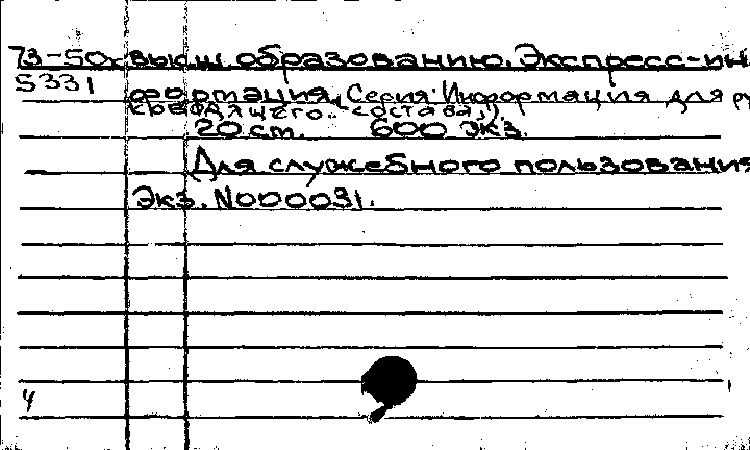 73-50x высш. образованию. Экспресс-ин
5331
формация. Серия: Информация для ру
ководящего состава,).
20 ст. 600 экз.
Для служебного пользования
Экз. №000031.
4